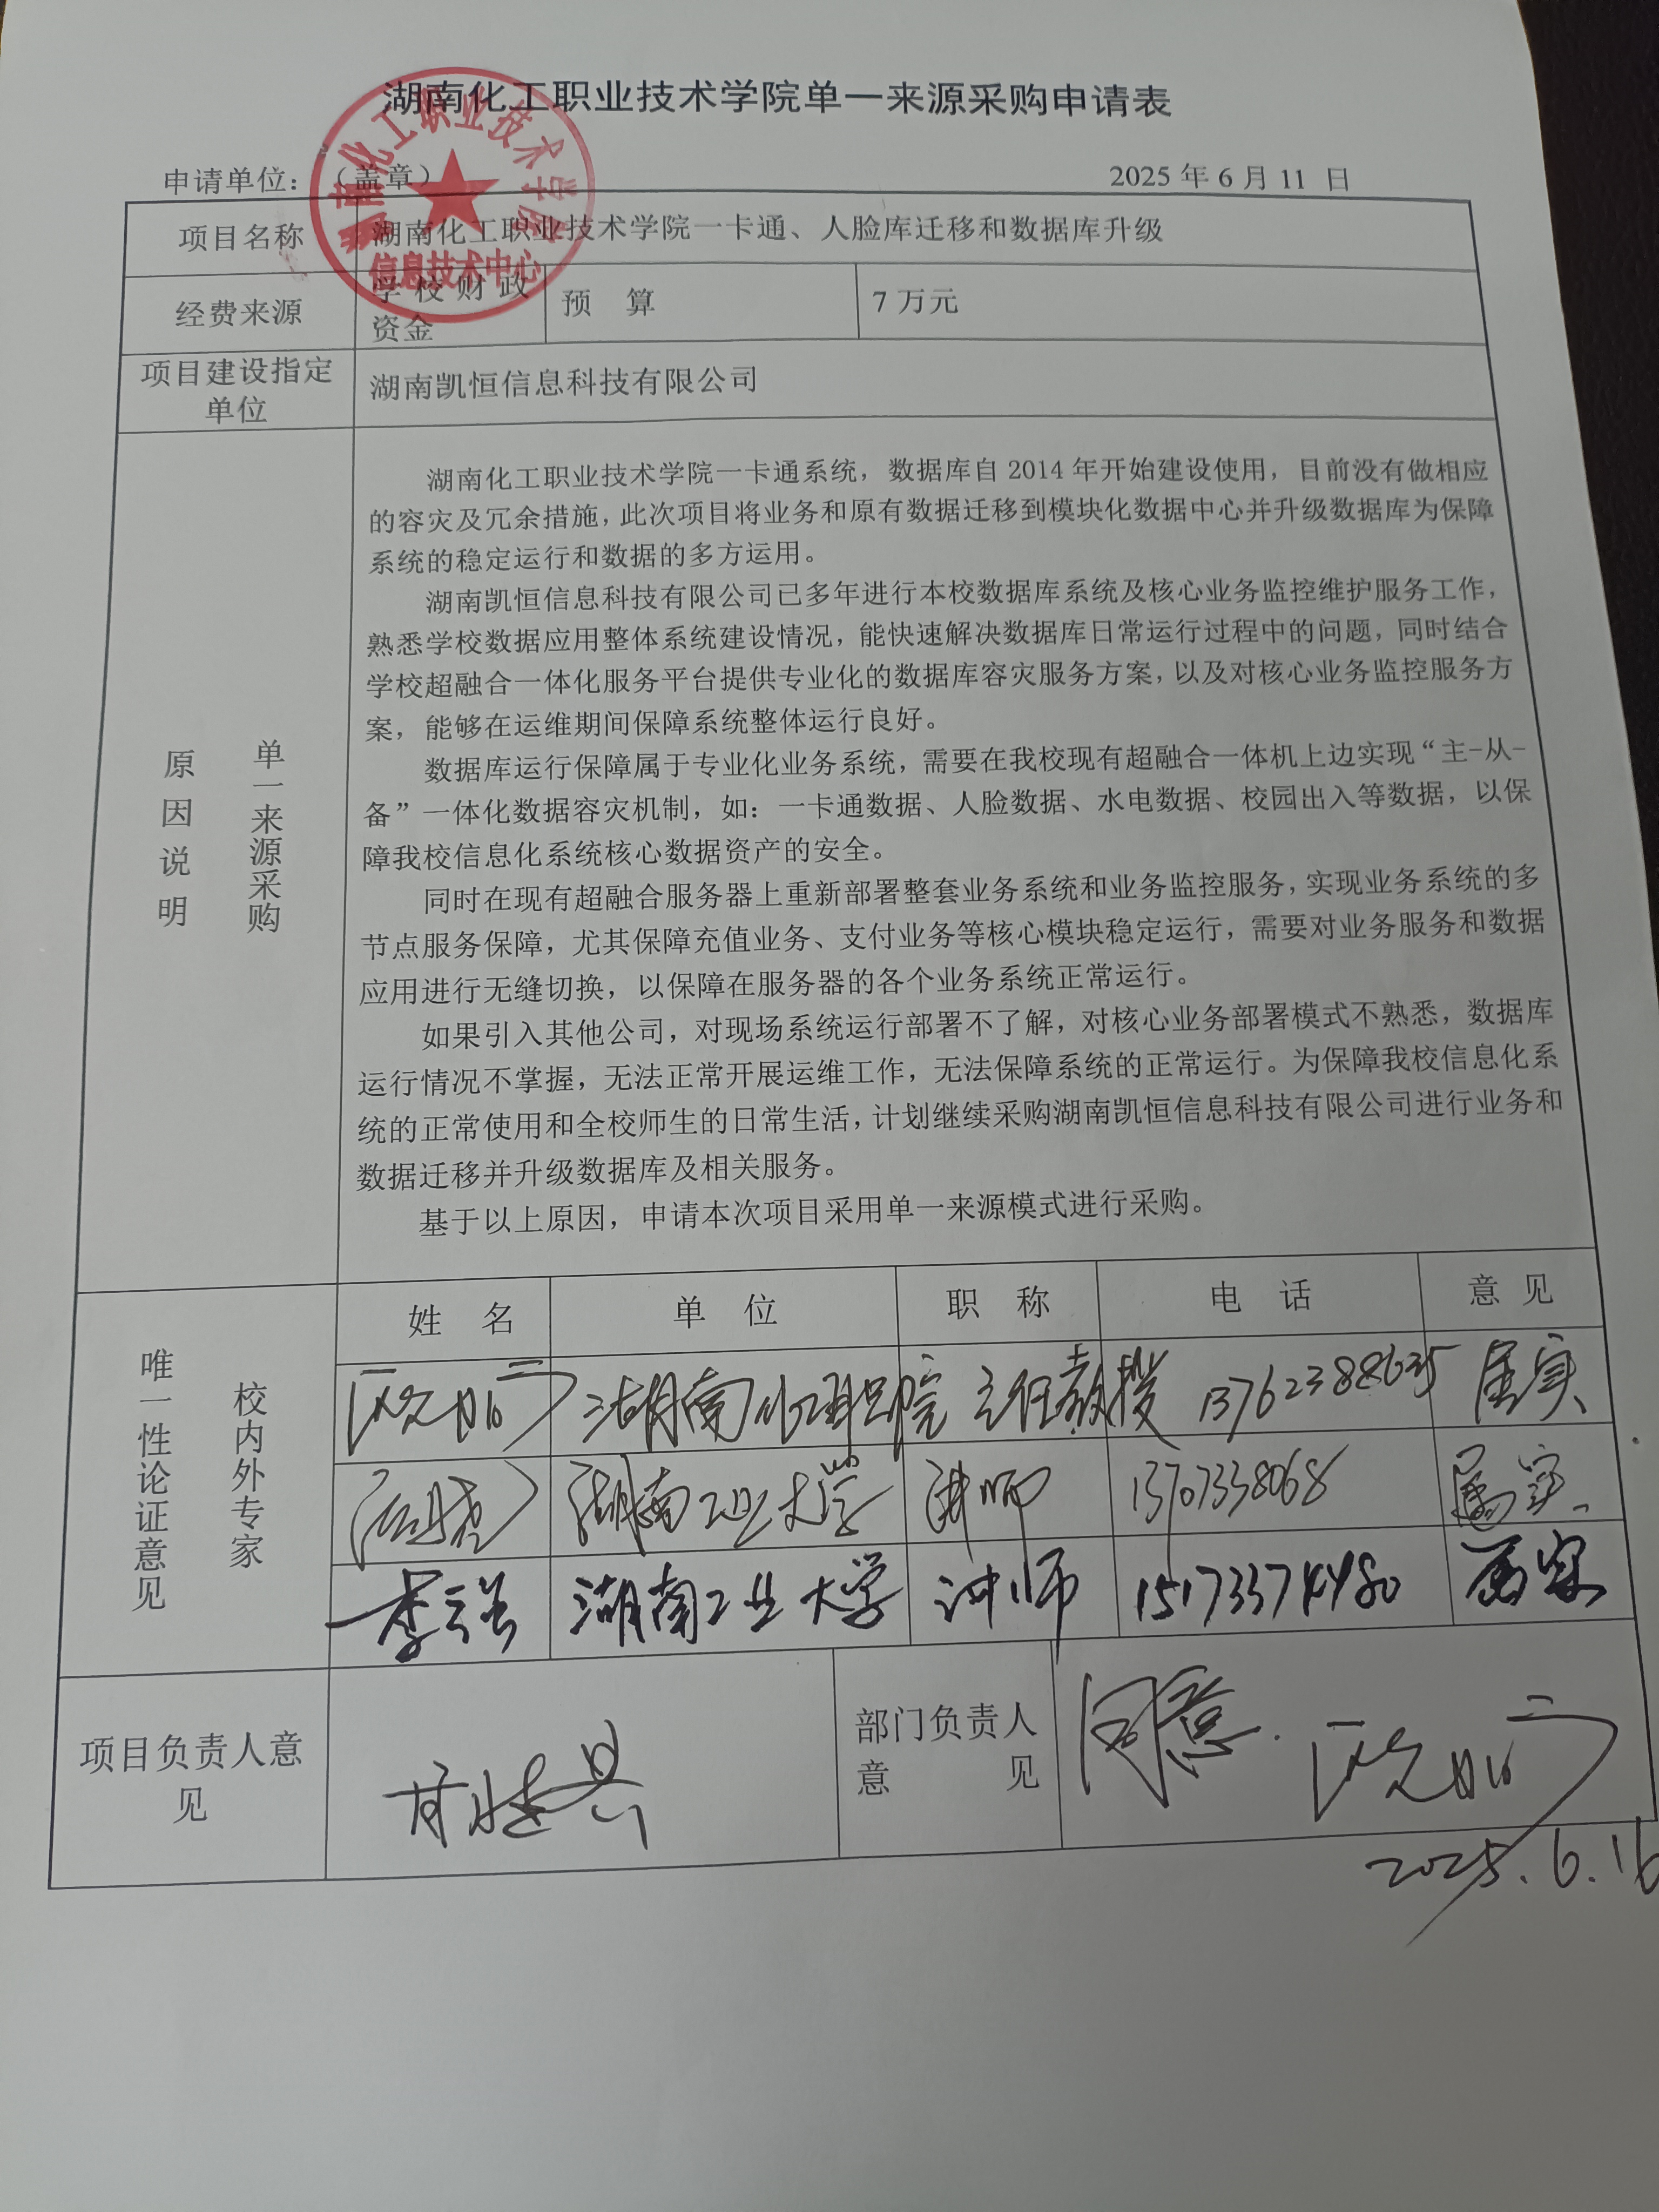 湖南化工职业技术学院单一来源采购申请表
申请单位：（盖章）
2025 年 6 月 11 日
湖南化工职业技术学院
信息技术中心
项目名称
湖南化工职业技术学院一卡通、人脸库迁移和数据库升级
经费来源
学校财政
资金
预 算
7 万元
项目建设指定
单位
湖南凯恒信息科技有限公司
单一来源采购
原因说明
湖南化工职业技术学院一卡通系统，数据库自 2014 年开始建设使用，目前没有做相应
的容灾及冗余措施，此次项目将业务和原有数据迁移到模块化数据中心并升级数据库为保障
系统的稳定运行和数据的多方运用。
湖南凯恒信息科技有限公司已多年进行本校数据库系统及核心业务监控维护服务工作，
熟悉学校数据应用整体系统建设情况，能快速解决数据库日常运行过程中的问题，同时结合
学校超融合一体化服务平台提供专业化的数据库容灾服务方案，以及对核心业务监控服务方
案，能够在运维期间保障系统整体运行良好。
数据库运行保障属于专业化业务系统，需要在我校现有超融合一体机上边实现“主-从-
备”一体化数据容灾机制，如：一卡通数据、人脸数据、水电数据、校园出入等数据，以保
障我校信息化系统核心数据资产的安全。
同时在现有超融合服务器上重新部署整套业务系统和业务监控服务，实现业务系统的多
节点服务保障，尤其保障充值业务、支付业务等核心模块稳定运行，需要对业务服务和数据
应用进行无缝切换，以保障在服务器的各个业务系统正常运行。
如果引入其他公司，对现场系统运行部署不了解，对核心业务部署模式不熟悉，数据库
运行情况不掌握，无法正常开展运维工作，无法保障系统的正常运行。为保障我校信息化系
统的正常使用和全校师生的日常生活，计划继续采购湖南凯恒信息科技有限公司进行业务和
数据迁移并升级数据库及相关服务。
基于以上原因，申请本次项目采用单一来源模式进行采购。
校内外专家
唯一性论证意见
姓 名 单 位 职 称 电 话 意 见
湖南化工职院 主任教授 13762388635 属实
湖南工业大学 讲师 13707338068 属实
湖南工业大学 讲师 15173374480 属实
项目负责人意
见
部门负责人
意 见
同意.
2025.6.16